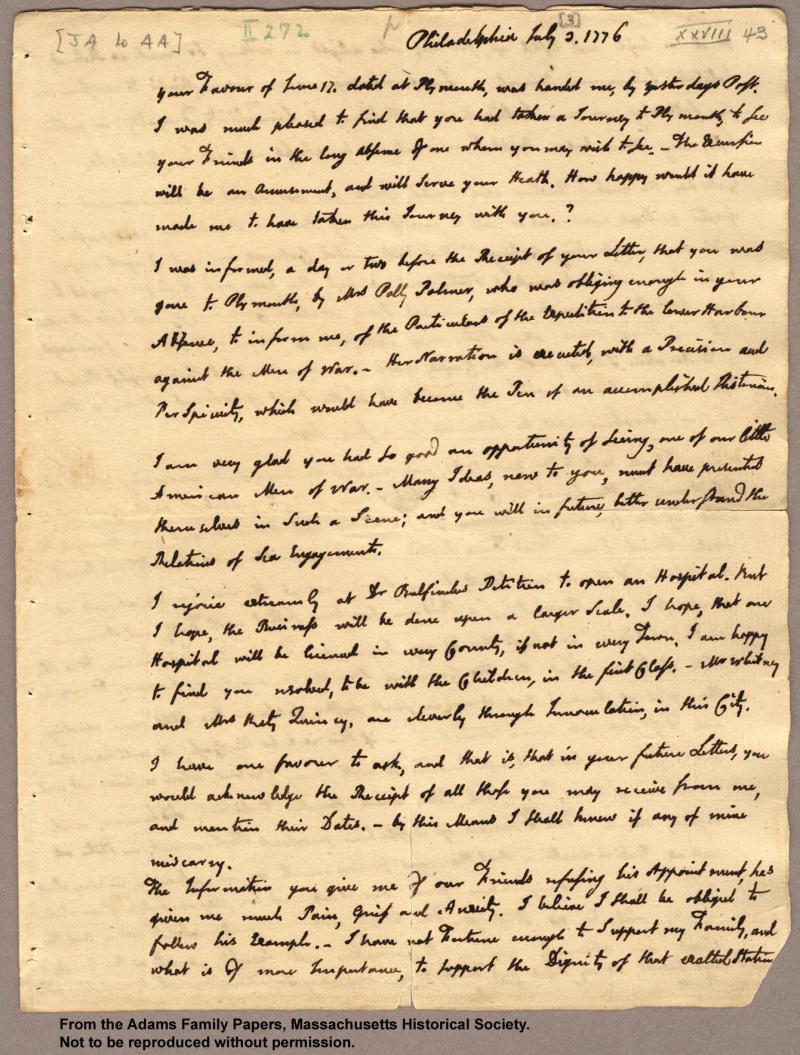 [JA to AA]
II 272
[3]
XXVIII 43
Philadelphia July 3. 1776
your Favour of June 17. dated at Plymouth, was handed me, by yesterdays Post.
I was much pleased to find that you had taken a Journey to Plymouth, to see
your Friends in the long absence of one whom you may wish to see. - The Excursion
will be an Amusement, and will serve your Health. How happy would it have
made me to have taken this Journey with you.?
I was informed, a day or two before the Receipt of your Letter, that you was
gone to Plymouth, by Mrs Polly Palmer, who was obliging enough in your
Absence, to inform me, of the Particulars of the Expedition to the lower Harbour
against the Men of War. - Her Narration is executed, with a Precision and
Perspicuity, which would have become the Pen of an accomplished Historian.
I am very glad you had so good an opportunity of seeing, one of our little
American Men of War. - Many Ideas, new to you, must have presented
themselves in such a Scene; and you will in future, better understand the
Relations of Sea Engagements.
I rejoice extreamly at Dr Bulfinches Petition to open an Hospital. But
I hope, the Business will be done upon a larger Scale. I hope, that one
Hospital will be licensed in every County, if not in every Town. I am happy
to find you resolved, to be with the Children, in the first Class. - Mr Whitney
and Mrs Katy Quincy, are cleverly through Innoculation, in this City.
I have one favour to ask, and that is, that in your future Letters, you
would acknowledge the Receipt of all those you may receive from me,
and mention their Dates. - by this Means I shall know if any of mine
miscarry.
The Information you give me of our Friends refusing his Appointment, has
given me much Pain, Grief and Anxiety. I believe I shall be obliged to
follow his Example. - I have not Fortune enough to support my Family, and
what is of more Importance, to support the Dignity of that exalted Station
From the Adams Family Papers, Massachusetts Historical Society.
Not to be reproduced without permission.